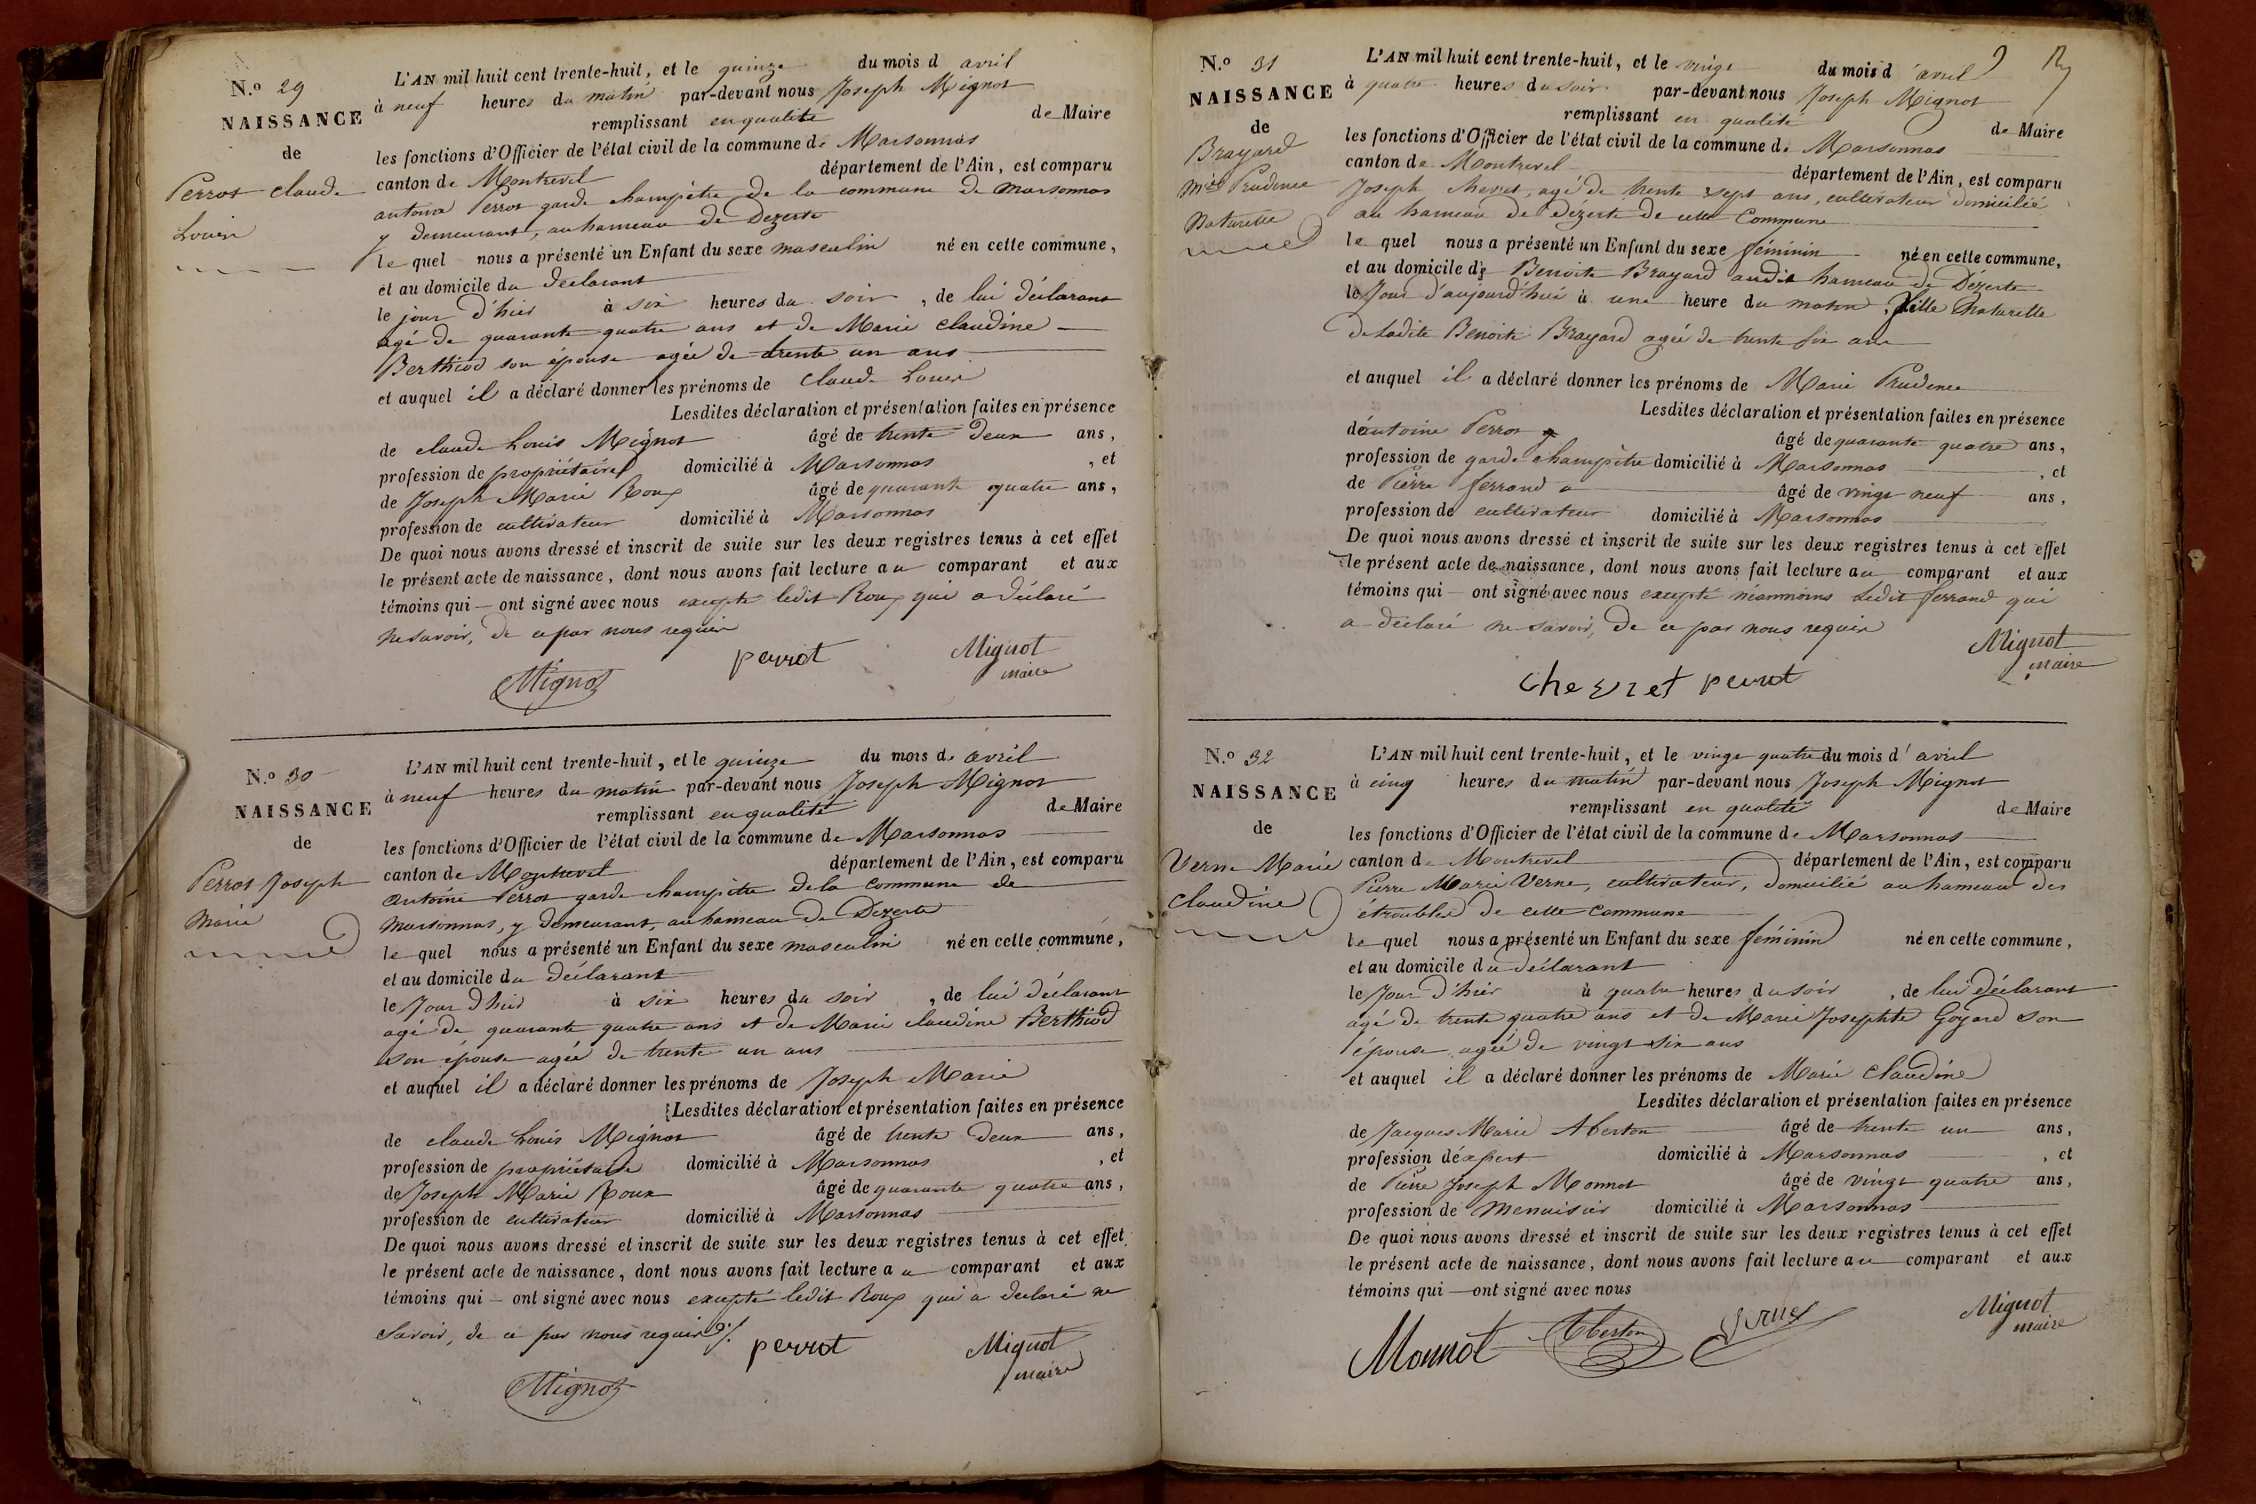 N.º 29
NAISSANCE
de
Perrot Claude
Louis
L'AN mil huit cent trente-huit, et le quinze du mois d avril
à neuf heures du matin par-devant nous Joseph Mignot
remplissant en qualité de Maire
les fonctions d'Officier de l'état civil de la commune de Marsonnas
canton de Montrevel département de l'Ain, est comparu
antoine Perrot garde champêtre de la commune de marsonnas
y demeurant, au hameau de Dezerte
le quel nous a présenté un Enfant du sexe masculin né en cette commune,
et au domicile du déclarant
le jour d'hier à six heures du soir, de lui déclarant
agé de quarante quatre ans et de Marie claudine
Berthiod son épouse agée de trente un ans
et auquel il a déclaré donner les prénoms de Claude Louis
Lesdites déclaration et présentation faites en présence
de claude Louis Mignot âgé de trente deux ans,
profession de propriétaire domicilié à Marsonnas, et
de Joseph Marie Roux âgé de quarante quatre ans,
profession de cultivateur domicilié à Marsonnas
De quoi nous avons dressé et inscrit de suite sur les deux registres tenus à cet effet
le présent acte de naissance, dont nous avons fait lecture au comparant et aux
témoins qui ont signé avec nous excepté ledit Roux qui a déclaré
ne savoir, de ce par nous requis
Mignot perrot Mignot
maire
N.º 30
NAISSANCE
de
Perrot Joseph
Marie
L'AN mil huit cent trente-huit, et le quinze du mois d. avril
à neuf heures du matin par-devant nous Joseph Mignot
remplissant en qualité de Maire
les fonctions d'Officier de l'état civil de la commune de Marsonnas
canton de Montrevel département de l'Ain, est comparu
antoine Perrot garde champêtre de la commune de
marsonnas, y demeurant, au hameau de Dezerte
le quel nous a présenté un Enfant du sexe masculin né en cette commune,
et au domicile du déclarant
le jour d'hier à six heures du soir, de lui déclarant
agé de quarante quatre ans et de Marie claudine Berthiod
son épouse agée de trente un ans
et auquel il a déclaré donner les prénoms de Joseph Marie
Lesdites déclaration et présentation faites en présence
de claude Louis Mignot âgé de trente deux ans,
profession de propriétaire domicilié à Marsonnas, et
de Joseph Marie Roux âgé de quarante quatre ans,
profession de cultivateur domicilié à Marsonnas
De quoi nous avons dressé et inscrit de suite sur les deux registres tenus à cet effet
le présent acte de naissance, dont nous avons fait lecture au comparant et aux
témoins qui ont signé avec nous excepté ledit Roux qui a declaré ne
savoir, de ce par nous requis
perrot Mignot
Mignot maire
N.º 31
NAISSANCE
de
Brayard
Mie Prudence
Naturelle
L'AN mil huit cent trente-huit, et le vingt du mois d'avril
à quatre heures du soir par-devant nous Joseph Mignot
remplissant en qualité de Maire
les fonctions d'Officier de l'état civil de la commune de Marsonnas
canton de Montrevel département de l'Ain, est comparu
Joseph chevret, agé de trente sept ans, cultivateur domicilié
au hameau de Dézerte de cette Commune
le quel nous a présenté un Enfant du sexe féminin né en cette commune,
et au domicile de Benoite Brayard audit hameau de Dézerte
le Jour d'aujourd'hui à une heure du matin, fille Naturelle
de ladite Benoite Brayard agée de trente six ans
et auquel il a déclaré donner les prénoms de Marie Prudence
Lesdites déclaration et présentation faites en présence
d'antoine Perrot âgé de quarante quatre ans,
profession de garde champêtre domicilié à Marsonnas, et
de Pierre ferrand âgé de vingt neuf ans,
profession de cultivateur domicilié à Marsonnas
De quoi nous avons dressé et inscrit de suite sur les deux registres tenus à cet effet
le présent acte de naissance, dont nous avons fait lecture au comparant et aux
témoins qui ont signé avec nous excepté néanmoins ledit ferrand qui
a déclaré ne savoir, de ce par nous requis
Mignot
maire
chevret perrot
N.º 32
NAISSANCE
de
Verne Marie
Claudine
L'AN mil huit cent trente-huit, et le vingt quatre du mois d'avril
à cinq heures du matin par-devant nous Joseph Mignot
remplissant en qualité de Maire
les fonctions d'Officier de l'état civil de la commune de Marsonnas
canton de Montrevel département de l'Ain, est comparu
Pierre Marie Verne, cultivateur, domicilié au hameau des
étroubles de cette commune
le quel nous a présenté un Enfant du sexe féminin né en cette commune,
et au domicile du déclarant
le Jour d'hier à quatre heures du soir, de lui déclarant
agé de trente quatre ans et de Marie Josephte Goyard son
épouse agée de vingt six ans
et auquel il a déclaré donner les prénoms de Marie Claudine
Lesdites déclaration et présentation faites en présence
de Jacques Marie Aberton âgé de trente un ans,
profession d'expert domicilié à Marsonnas, et
de Pierre Joseph Monnot âgé de vingt quatre ans,
profession de menuisier domicilié à Marsonnas
De quoi nous avons dressé et inscrit de suite sur les deux registres tenus à cet effet
le présent acte de naissance, dont nous avons fait lecture au comparant et aux
témoins qui ont signé avec nous
Monnot Aberton Verne Mignot
maire